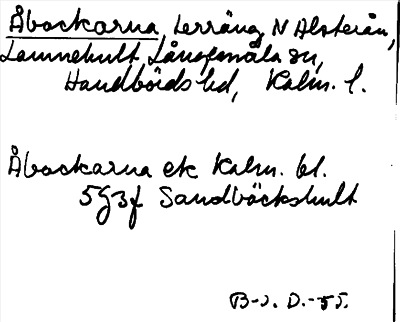 Åbackarna, terräng N Alsterån,
Lamnehult, Långemåla sn,
Handbörds hd, Kalm. l.
Åbackarna ek Kalm. bl.
5G3f Sandbäckshult
B-s. D.-55.